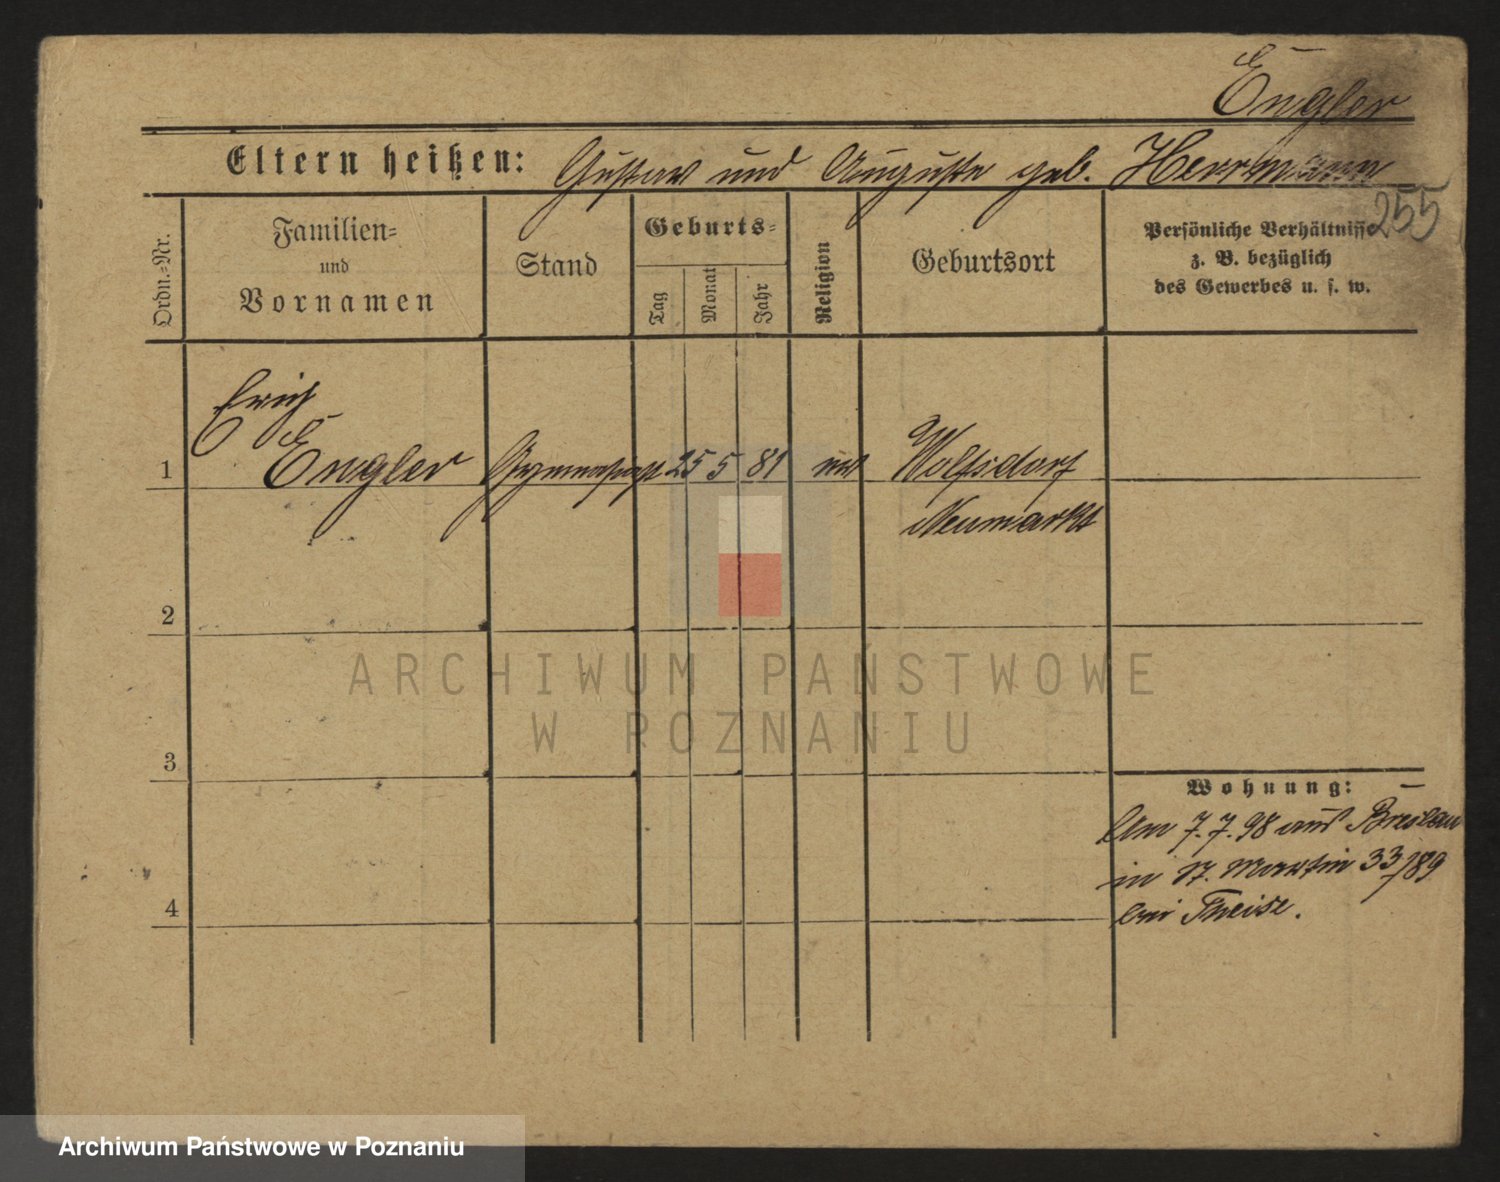 Engler
Eltern heißen: Gustav und Auguste geb. Herrmann
255
Ordn.-Nr.
Familien-
und
Vornamen
Stand
Geburts-
Tag
Monat
Jahr
Religion
Geburtsort
Persönliche Verhältnisse
z. B. bezüglich
des Gewerbes u. s. w.
Erich
1 Engler Gymnasiast 25 5 81 Wolfsdorf
Neumarkt
2
ARCHIWUM PAŃSTWOWE
W POZNANIU
3
Wohnung:
Am 7.7.98 aus Breslau
in St. Martin 33/89
bei Theise.
4
Archiwum Państwowe w Poznaniu